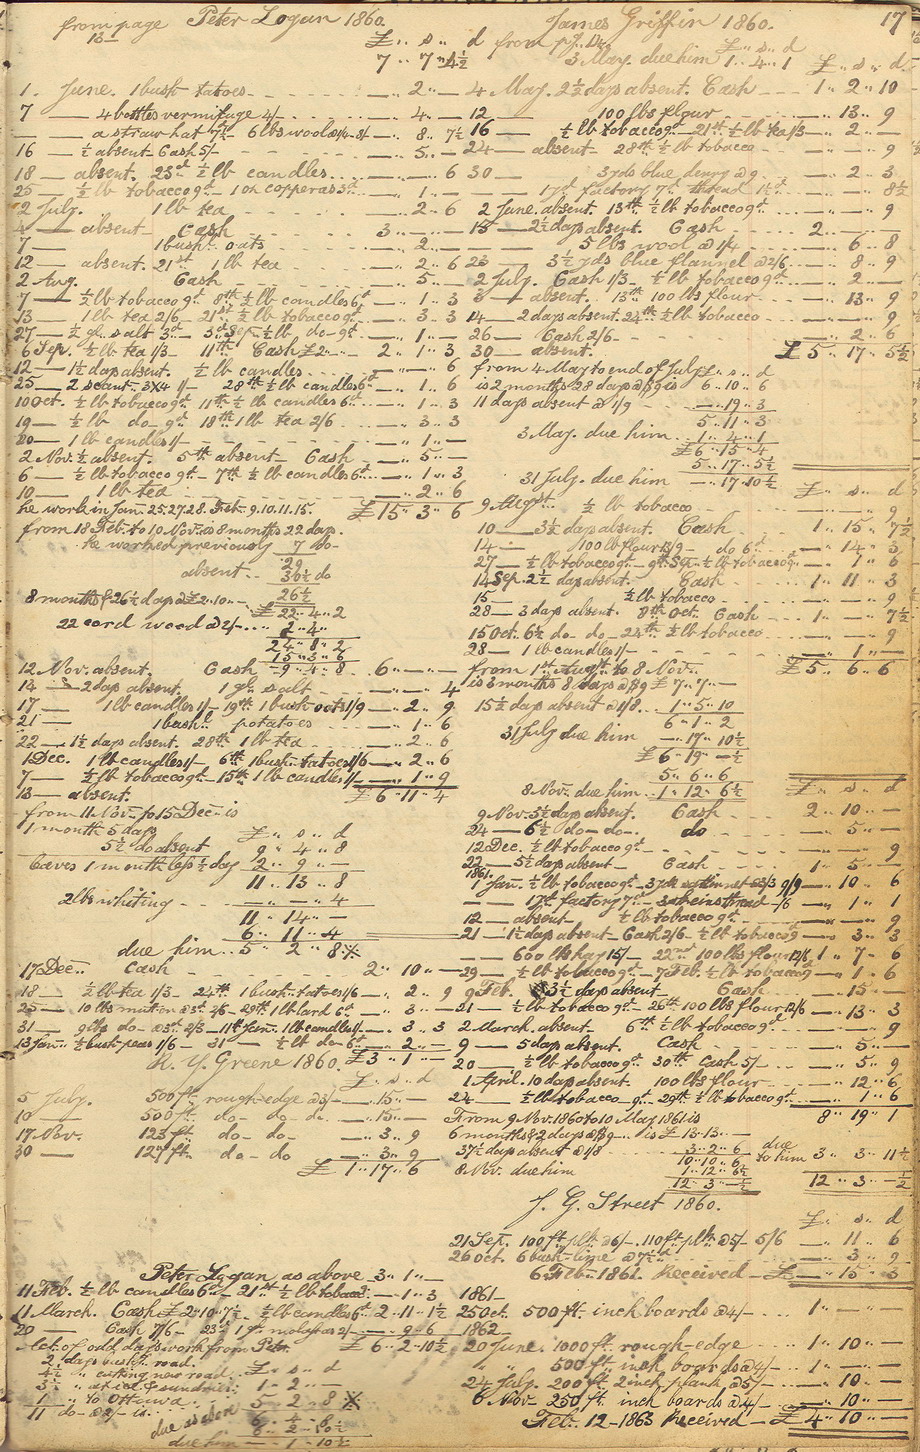 from page 13 Peter Logan 1860.
£ .. s .. d
7 .. 7 .. 4½
1. June. 1 bush tatoes - - - — .. 2 .. —
7 — 4 bottles vermifuge 4/- — .. 4 .. —
— a straw hat 7½d. 6 lbs wool — .. 8 .. 7½
16 — ½ absent - Cash 5/- — .. 5 .. —
18 — absent. 23d ½ lb candles — .. — .. 6
25 — ½ lb tobacco 9d - 1 oz copperas 3d — .. 1 .. —
2 July. 1 lb tea — .. 2 .. 6
4 — absent Cash 3 .. — .. —
7 — 1 bush. oats — .. 2 .. —
12 — absent. 21st 1 lb tea — .. 2 .. 6
2 Aug. Cash — .. 5 .. —
7 — ½ lb tobacco 9d 8th ½ lb candles 6d — .. 1 .. 3
13 1 lb tea 2/6 21st ½ lb tobacco 9d — .. 3 .. 3
27 — ½ gl. salt 3d - 3d Sep. ½ lb do - 9d — .. 1 .. —
6 Sep. ½ lb tea 1/3 - 11th Cash £2 2 .. 1 .. 3
12 — 1½ days absent. ½ lb candles — .. — .. 6
25 — 2 scant. 3x4 1/- 28th ½ lb candles 6d — .. 1 .. 6
10 Oct. ½ lb tobacco 9d 11th ½ lb candles 6d — .. 1 .. 3
19 — ½ lb do - 9d 18th 1 lb tea 2/6 — .. 3 .. 3
20 — 1 lb candles 1/- — .. 1 .. —
2 Nov. ½ absent. 5th absent - Cash — .. 5 .. —
6 — ½ lb tobacco 9d - 7th ½ lb candles 6d — .. 1 .. 3
10 — 1 lb tea — .. 2 .. 6
he work in Jan. 25. 27. 28. Feb. 9. 10. 11. 15. £ 15 .. 3 .. 6
from 18 Feb. to 10 Nov. is 8 months 22 days
he worked previously 7 do -
29
absent .. 30½ do
26½
8 months & 26½ days @ £2.10 - £ 22 .. 4 .. 2
22 cord wood @ 2/- 2 .. 4 .. —
24 .. 8 .. 2
15 .. 3 .. 6
12 Nov. absent. Cash — 9 .. 4 .. 8 6 .. — .. —
14 — 2 days absent. 1 gl. salt — .. — .. 4
17 — 1 lb candles 1/- 19th 1 bush oats 1/9 — .. 2 .. 9
21 — 1 bushl. potatoes — .. 1 .. 6
22 — 1½ days absent. 28th 1 lb tea — .. 2 .. 6
1 Dec. 1 lb candles 1/- 6th 1 bush tatoes 1/6 — .. 2 .. 6
7 — ½ lb tobacco 9d - 15th 1 lb candles 1/- — .. 1 .. 9
13 — absent. £ 6 .. 11 .. 4
from 11 Nov. to 15 Dec. is
1 month 5 days £ .. s .. d
5½ do absent 9 .. 4 .. 8
leaves 1 month less ½ day 2 .. 9 .. —
11 .. 13 .. 8
2 lbs whiting — .. — .. 4
11 .. 14 .. —
6 .. 11 .. 4
due him .. 5 .. 2 .. 8
17 Dec. Cash 2 .. 10 .. —
18 — ½ lb tea 1/3 - 24th 1 bush tatoes 1/6 — .. 2 .. 9
25 — 10 lbs mutton @ 3d 2/6 - 29th 1 lb lard 6d — .. 3 .. —
31 — 9 lbs do - @ 3d 2/3 - 11th Jan. 1 lb candles 1/- — .. 3 .. 3
13 Jan. ½ bush peas 1/6 - 31 — ½ lb do - 6d — .. 2 .. —
£ 3 .. 1 .. —
R. Y. Greene 1860.
£ .. s .. d
5 July. 500 ft rough-edge @ 3/- — .. 15 .. —
10 — 500 ft do - do — .. 15 .. —
17 Nov. 125 ft do - do - — .. 3 .. 9
30 — 127 ft. do - do — .. 3 .. 9
£ 1 .. 17 .. 6
Peter Logan as above 3 .. 1 .. —
11 Feb. ½ lb candles 6d - 21st ½ lb tobacco — .. 1 .. 3
11 March. Cash £2 .. 10 .. 7½ ½ lb candles 6d 2 .. 11 .. 1½
20 — Cash 7/6 - 23d 1 qt. molasses 2/- — .. 9 .. 6
Act. of odd days work from Petr. £ 6 .. 2 .. 10½
2 days bush road.
4½ .. cutting new road. £ .. s .. d
3½ .. at ice & sundries. 1 .. 2 .. —
1 .. to Ottawa. 5 .. 2 .. 8
11 do - @ 2/- is. due as above
6 .. 4 .. 8
6 .. 2 .. 10½
due him — .. 1 .. 10½
James Griffin 1860. 17
from pg.
£ .. s .. d
3 May. due him 1 .. 4 .. 1
£ .. s .. d
4 May. 2½ days absent. Cash 1 .. 2 .. 10
12 100 lbs flour — .. 13 .. 9
16 ½ lb tobacco 9d - 21st ½ lb tea 1/3 — .. 2 .. —
24 — absent - 28th ½ lb tobacco — .. — .. 9
30 — 3 yds blue denry @ 9 — .. 2 .. 3
— 1 yd. factory 7d thread 1½d — .. — .. 8½
2 June. absent. 13th ½ lb tobacco 9d — .. — .. 9
15 — 2½ days absent. Cash 2 .. — .. —
5 lbs wool @ 1/4 — .. 6 .. 8
23 — 3½ yds blue flannel @ 2/6 — .. 8 .. 9
2 July. Cash 1/3 ½ lb tobacco — .. 2 .. —
3 — absent. 13th 100 lbs flour — .. 13 .. 9
14 — 2 days absent. 24th ½ lb tobacco — .. — .. 9
26 — Cash 2/6 — .. 2 .. 6
30 — absent. £ 5 .. 17 .. 5½
from 4 May to end of July £ .. s .. d
is 2 months 28 days @ $9 is 6 .. 10 .. 6
11 days absent @ 1/9 - — .. 19 .. 3
5 .. 11 .. 3
3 May. due him 1 .. 4 .. 1
£ 6 .. 15 .. 4
5 .. 17 .. 5½
31 July. due him — .. 17 .. 10½
£ .. s .. d
9 Augst. ½ lb tobacco — .. — .. 9
10 — 3½ days absent. Cash 1 .. 15 .. 7½
14 — 100 lb flour 13/9 - do 6d — .. 14 .. 3
27 — ½ lb tobacco 9d - 9th Sep. ½ lb tobacco 9d — .. 1 .. 6
14 Sep. 2½ days absent. Cash 1 .. 11 .. 3
15 — ½ lb tobacco — .. — .. 9
28 — 3 days absent. 8th Oct. Cash 1 .. — .. 7½
15 Oct. 6½ do - do - 24th ½ lb tobacco — .. — .. 9
28 — 1 lb candles 1/- — .. 1 .. —
from 1st Augst. to 8 Nov. £ 5 .. 6 .. 6
is 3 months 8 days @ $9 £ 7 .. 7 .. —
15½ days absent @ 1/8 1 .. 5 .. 10
6 .. 1 .. 2
31 July due him — .. 17 .. 10½
£ 6 .. 19 .. — ½
5 .. 6 .. 6
8 Nov. due him 1 .. 12 .. 6½
£ .. s .. d
9 Nov. 5½ days absent. Cash 2 .. 10 .. —
24 — 6½ do - do - do — .. 5 .. —
12 Dec. ½ lb tobacco 9d — .. — .. 9
22 — 5½ days absent — Cash 1 .. 5 .. —
1861.
1 Jan. ½ lb tobacco 9d - 3 yds sattinnet @ 3/3 9/9 — .. 10 .. 6
— 1 yd. factory 7d - 3 skeins thread - /6 — .. 1 .. 1
12 — absent ½ lb tobacco 9d — .. — .. 9
21 — 1½ days absent - Cash 2/6 - ½ lb tobacco 9 — .. 3 .. 3
— 600 lbs hay 15/- 22nd 100 lbs flour 12/6 1 .. 7 .. 6
29 — ½ lb tobacco 9d - 7 Feb. ½ lb tobacco 9 — .. 1 .. 6
9 Feb. 3½ days absent Cash — .. 15 .. —
21 — ½ lb tobacco 9d - 26th 100 lbs flour 12/6 — .. 13 .. 3
2 March. absent. 6th ½ lb tobacco 9d — .. — .. 9
9 — 5 days absent. Cash — .. 5 .. —
20 — ½ lb tobacco 9d. 30th Cash 5/- — .. 5 .. 9
1 April. 10 days absent. 100 lbs flour — .. 12 .. 6
24 — ½ lb tobacco 9d - 29th ½ lb tobacco 9d — .. 1 .. 6
From 9 Nov. 1860 to 10 May 1861 is 8 .. 19 .. 1
6 months & 2 days @ $9 - is £ 13 .. 13 .. —
37½ days absent @ 1/8 3 .. 2 .. 6 due to him 3 .. 3 .. 11½
10 .. 10 .. 6
8 Nov. due him 1 .. 12 .. 6½
12 .. 3 .. — ½ 12 .. 3 .. — ½
J. G. Street 1860.
£ .. s .. d
21 Sep. 100 ft plk @ 6/- 110 ft plk @ 5/- 5/6 — .. 11 .. 6
26 Oct. 6 bush - lime @ 7½d — .. 3 .. 9
6 Feb. 1861. Received — £ — .. 15 .. 3
1861
25 Oct. 500 ft. inch boards @ 4/- 1 .. — .. —
1862.
20 June. 1000 ft. rough-edge 1 .. 10 .. —
" " 500 ft inch boards @ 4/- 1 .. — .. —
24 July. 200 ft 2 inch plank @ 5/- — .. 10 .. —
6 Nov. 250 ft. inch boards @ 4/- — .. 10 .. —
Feb. 12 - 1863 Received — £ 4 .. 10 .. —